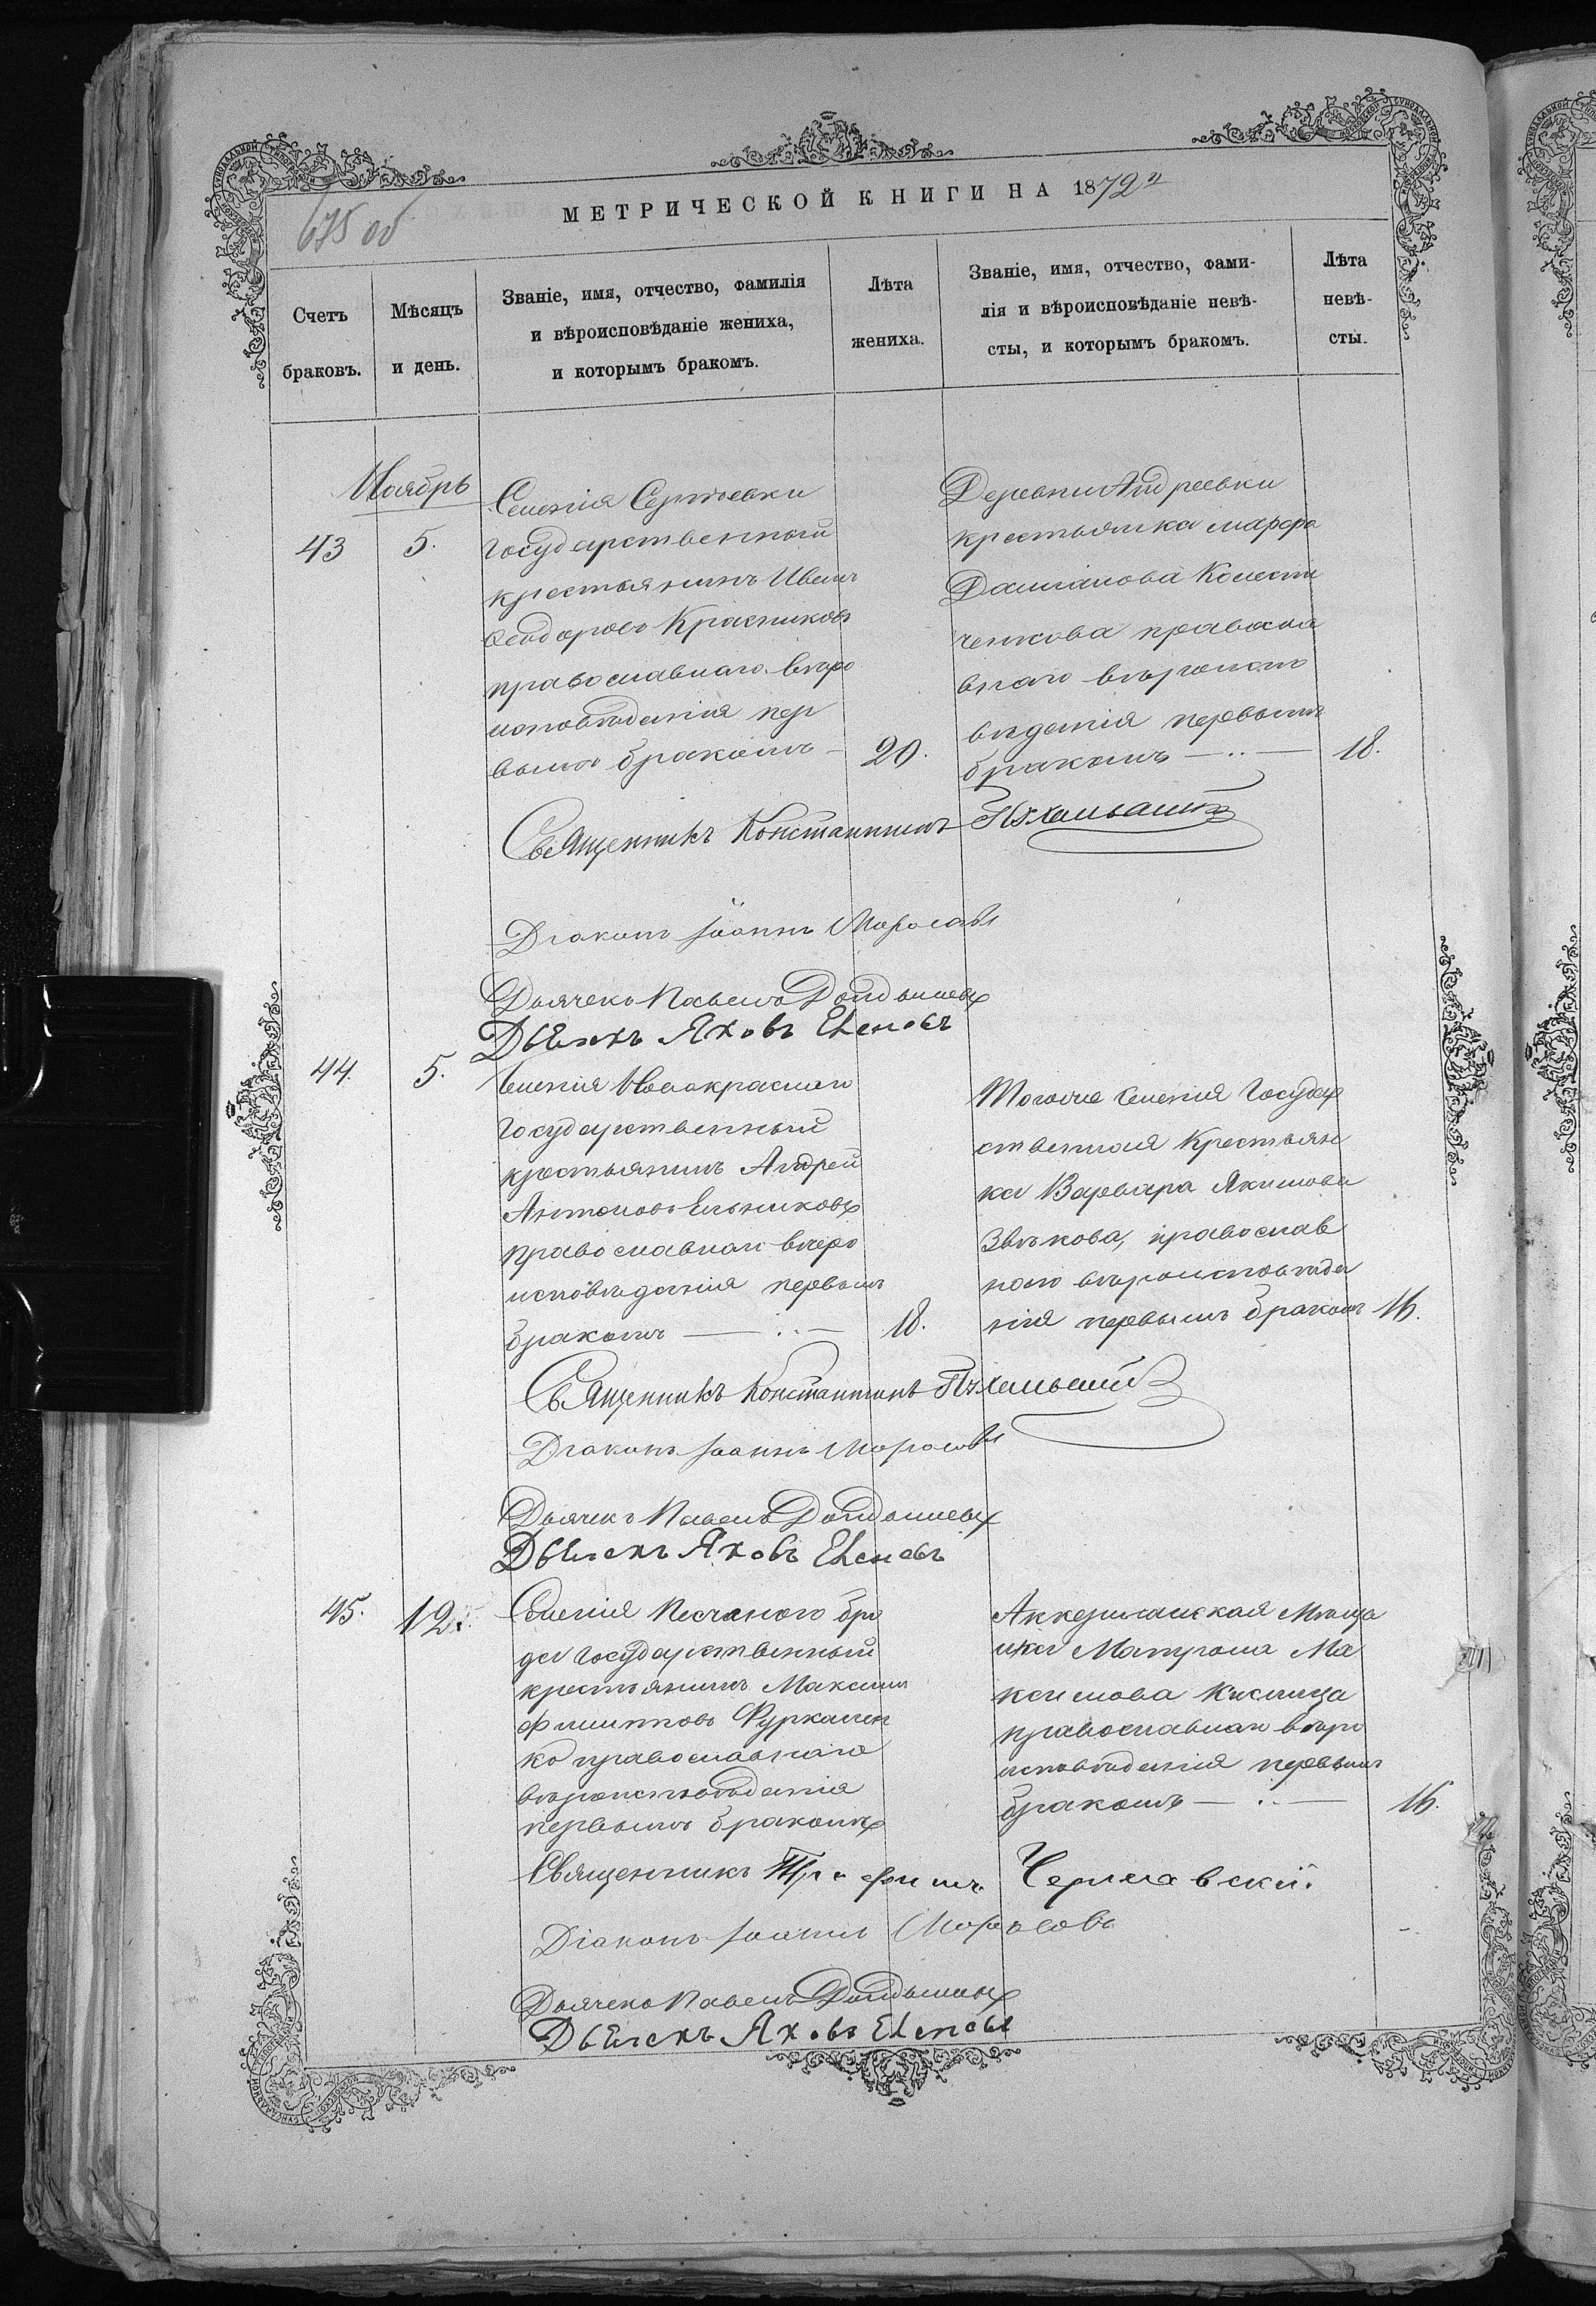 МЕТРИЧЕСКОЙ КНИГИ НА 1872
675 об
Счетъ браковъ.
Мѣсяцъ и день.
Званіе, имя, отчество, фамилія
и вѣроисповѣданіе жениха,
и которымъ бракомъ.
Лѣта жениха.
Званіе, имя, отчество, фами-
лія и вѣроисповѣданіе невѣ-
сты, и которымъ бракомъ.
Лѣта невѣ-
сты.
Ноябрь
43
5.
Селенія Сергѣевки
государственный
крестьянинъ Иванъ
Ѳеодоровъ Красниковъ
православнаго вѣро
исповѣданія пер
вымъ бракомъ
20.
Деревни Андреевки
крестьянка Марфа
Даміанова
ченкова правосла
внаго вѣроиспо
вѣданія первымъ
бракомъ
18.
Священникъ Константинъ
Діаконъ Іоаннъ Моросовъ
Дьячекъ Павелъ
Дьячекъ Яковъ
44.
5.
Селенія
государственный
крестьянинъ Андрей
Антоновъ Ельниковъ
православнаго вѣро
исповѣданія первымъ
бракомъ
18.
Тогоже селенія государ
ственная крестьян
ка Варвара Якимова
Звѣкова, православ
наго вѣроисповѣда
нія первымъ бракомъ
16.
Священникъ Константинъ
Діаконъ Іоаннъ Моросовъ
Дьячекъ Павелъ
Дьячекъ Яковъ
45.
12.
Селенія Песчаного бро
да государственный
крестьянинъ Максимъ
Филипповъ Фуркален
ко православнаго
вѣроисповѣданія
первымъ бракомъ
Аккерманская мѣща
нка Матрона Ма
ксимова Кислица
православнаго вѣро
исповѣданія первымъ
бракомъ
16.
Священникъ Трофимъ Чернявскій.
Діаконъ Іоаннъ Моросовъ
Дьячекъ Павелъ
Дьячекъ Яковъ